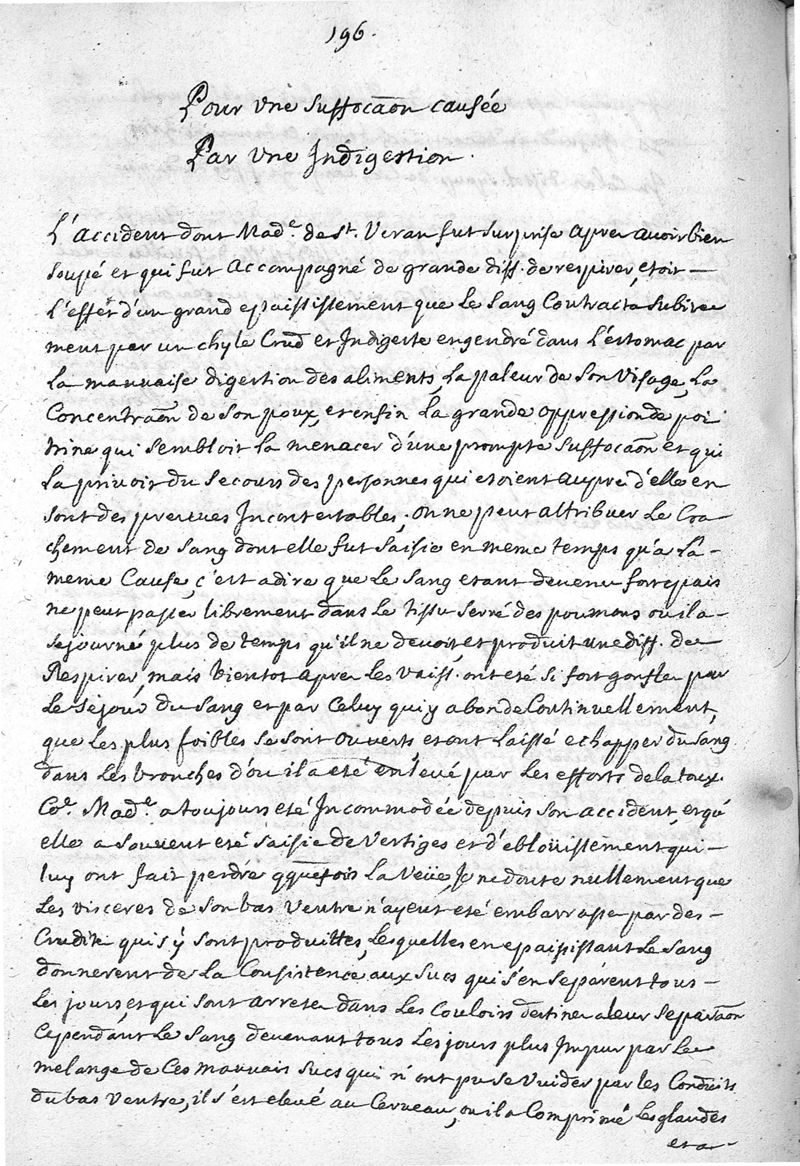 196.
Pour Une Suffocaõn causée
Par Une Indigestion.
L'accident dont Mad.e de St. Veran fut surprise apres avoir bien
soupé et qui fut accompagné de grande diff. de respirer, etoit
L'effet d'un grand epaississement que Le sang Contracta subite
ment par un chyle Crud et Indigeste engendré dans L'estomac par
La mauvaise digestion des aliments, La paleur de son Visage, La
Concentraõn de son poux, et enfin La grande oppression de poi
trine qui sembloit La menacer d'une prompte suffocaõn et qui
La privoit du secours des personnes qui etoient aupres d'elle en
sont des preuves Incontestables; on ne peut attribuer Le Cra
chement de sang dont elle fut saisie en meme temps qu'a La
meme Cause, c'est a dire que Le sang etant devenu fort epais
ne peut passer librement dans Le tissu serré des poumons ou il a
sejourné plus de temps qu'il ne devoit, et produit une diff. de
Respirer, mais bientot apres Les vaiss. ont eté si fort gonfles par
Le sejour du sang et par Celuy qui y abonde Continuellement,
que Les plus foibles se sont ouverts et ont Laissé echapper du sang
dans Les bronches d'ou il a eté enlevé par Les efforts de la toux.
Co.e Mad.e a toujours eté Incommodée depuis son accident, et qu'
elle a souvent eté saisie de Vertiges et d'eblouissement qui
luy ont fait perdre qquefois La Veüe, Je ne doute nullement que
Les visceres de son bas Ventre n'ayent eté embarasse par des
Crudités qui s'y sont produittes, Lesquelles en epaississant Le sang
donnerent de La Consistence aux sucs qui s'en separent tous
Les jours, et qui sont arretes dans Les Couloirs destines a leur separaõn
Cependant Le sang devenant tous Les jours plus Impur par Le
melange de Ces mauvais sucs qui n'ont pu se Vuider par les Conduits
du bas Ventre, il s'est elevé au Cerveau, ou il a Comprimé Les glandes
et a